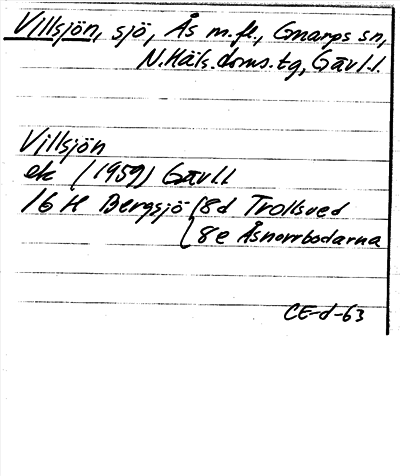 Villsjön, sjö, Ås m.fl., Gnarps sn,
N.Häls.doms.tg, Gävl.l.
Villsjön
ek (1959) Gävl.l
16 H Bergsjö { 8d Trollsved
8e Åsnorrbodarna
CE-d-63